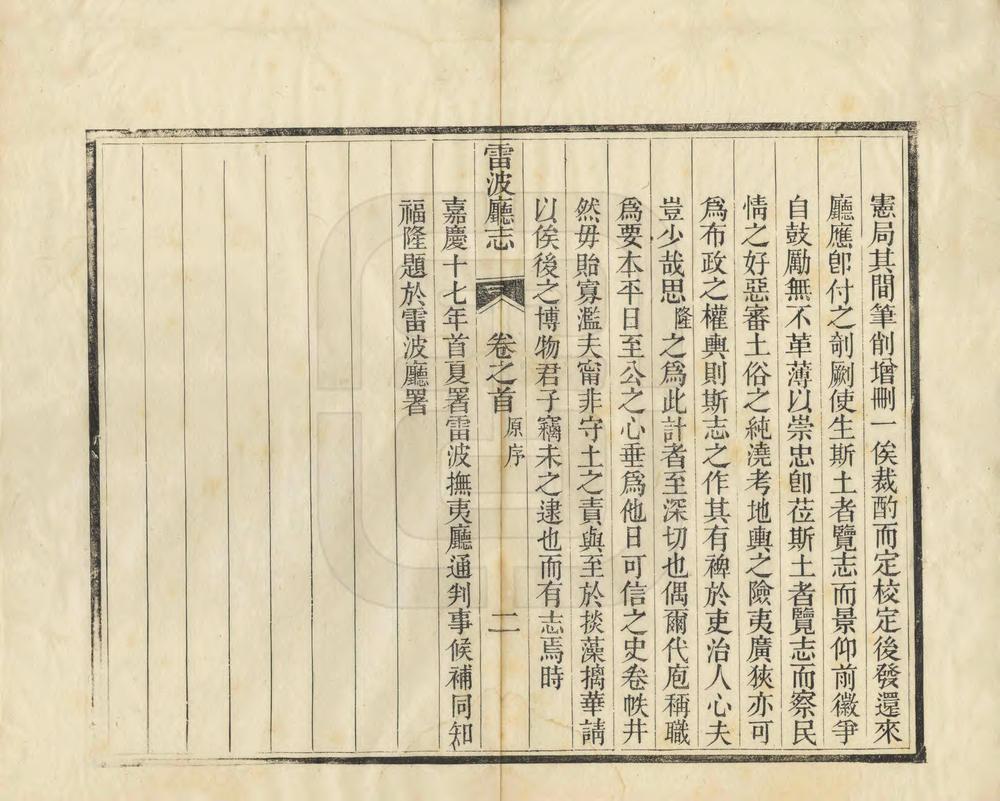 憲局其間筆削增刪一俟裁酌而定校定後發還來
廳應卽付之剞劂使生斯土者覽志而景仰前徽爭
自鼓勵無不革薄以崇忠卽莅斯土者覽志而察民
情之好惡審土俗之純澆考地輿之險夷廣狹亦可
爲布政之權輿則斯志之作其有裨於吏治人心夫
豈少哉思隆之爲此計者至深切也偶爾代庖稱職
爲要本平日至公之心垂爲他日可信之史卷帙井
然毋貽寡濫夫甯非守土之責與至於掞藻摛華請
以俟後之博物君子竊未之逮也而有志焉時
雷波廳志 卷之首 原序 二
嘉慶十七年首夏署雷波撫夷廳通判事候補同知
福隆題於雷波廳署